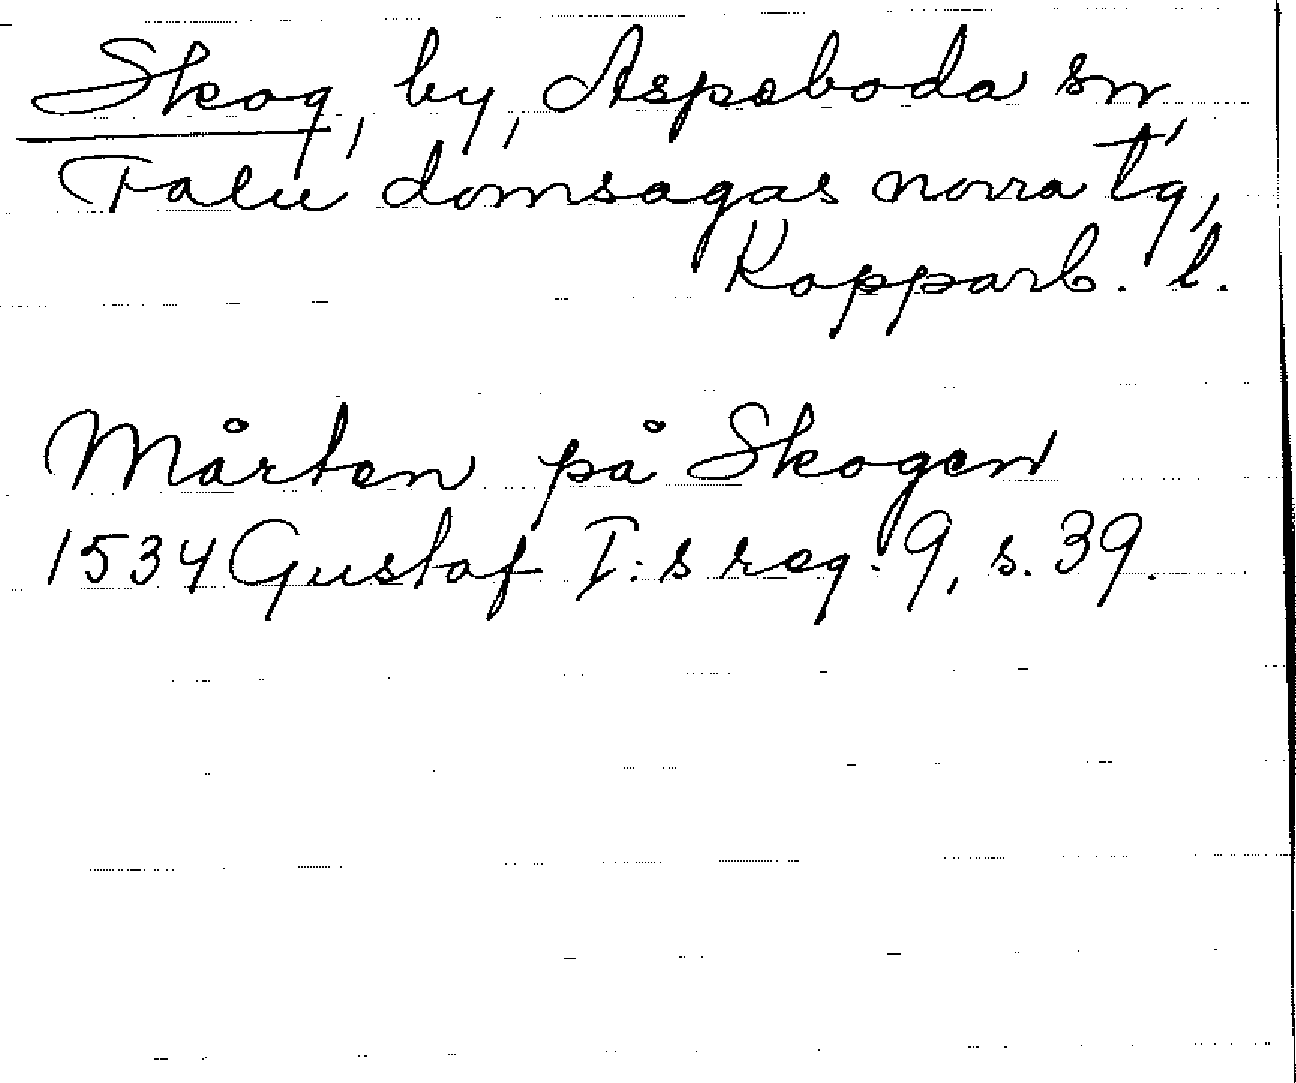 Skog, by, Aspeboda sn,
Falu domsagas norra tg,
Kopparb. l.
Mårten på Skogen
1534 Gustaf I:s reg. 9, s. 39.